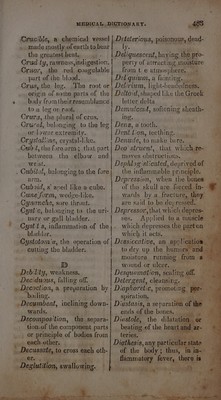 MEDICAL DICTIONARY.
Crucible, a chemical vessel
made mostly of earth to bear
the greatest heat.
Crudity, rawness, indigestion.
Cruor, the red coagulable
part of the blood.
Crus, the leg. The root or
origin of some parts of the
body from their resemblance
to a leg or root.
Crura, the plural of crus.
Crural, belonging to the leg
or lower extremity.
Crystalline, crystal-like.
Cubit, the fore arm; that part
between the elbow and
wrist.
Cubital, belonging to the fore
arm.
Cuboid, like a cube.
Cuneiform, wedge-like.
Cynanche, sore throat.
Cystic, belonging to the uri-
nary or gall bladder.
Cystitis, inflammation of the
bladder.
Cystotomia, the operation of
cutting the bladder.
D
Debility, weakness.
Deciduous, falling off.
Decoction, a preparation by
boiling.
Decumbent, inclining down-
wards.
Decomposition, the separa-
tion of the component parts
or principle of bodies from
each other.
Decussate, to cross each oth-
er.
Deglutition, swallowing.
Deleterious, poisonous, dead-
ly.
Deliquescent, having the pro-
perty of attracting moisture
from the atmosphere.
Deliquium, a fainting.
Delirium, light-headedness.
Deltoid, shaped like the Greek
letter delta.
Demulcent, softening, sheath-
ing.
Dens, a tooth.
Dentition, teething.
Denude, to make bare.
Deobstruent, that which re-
moves obstructions.
Dephlogisticated, deprived of
the inflammable principle.
Depression, when the bones
of the skull are forced in-
wards by a fracture, they
are said to be depressed.
Depressor, that which depres-
ses. Applied to a muscle
which depresses the part on
which it acts.
Desiccation, an application
to dry up the humors and
moisture running from a
wound or ulcer.
Desquamation, scaling off.
Detergent, cleansing.
Diaphoretic, promoting per-
spiration.
Diastasis, a separation of the
ends of the bones.
Diastole, the dilatation or
beating of the heart and ar-
teries.
Diathesis, any particular state
of the body; thus, in in-
flammatory fever, there is